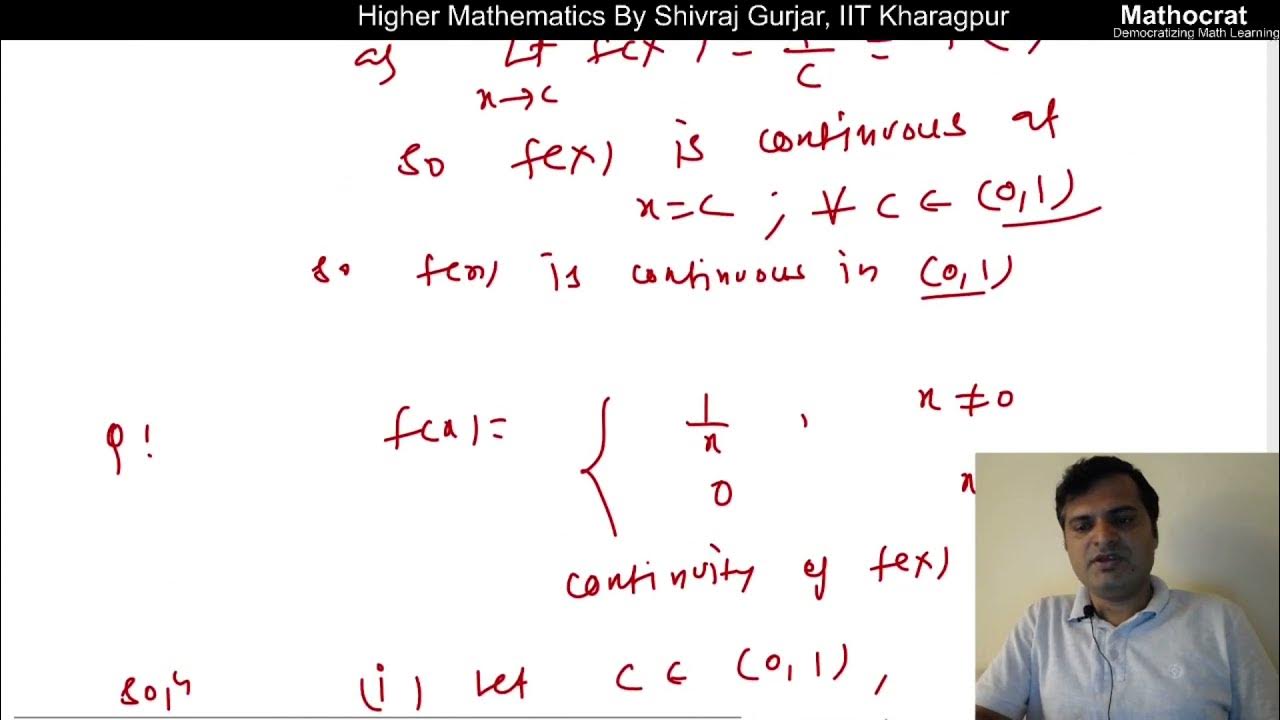 Higher Mathematics By Shivraj Gurjar, IIT Kharagpur
Mathocrat
Democratizing Math Learning
as Lt f(x) = 1/c =
x→c
so f(x) is continuous at
x=c ; ∀ c ∈ (0,1)
so f(x) is continuous in (0,1)
Q! f(x)= { 1/x , x ≠ 0
0 x
continuity of f(x)
(i) let c ∈ (0,1),